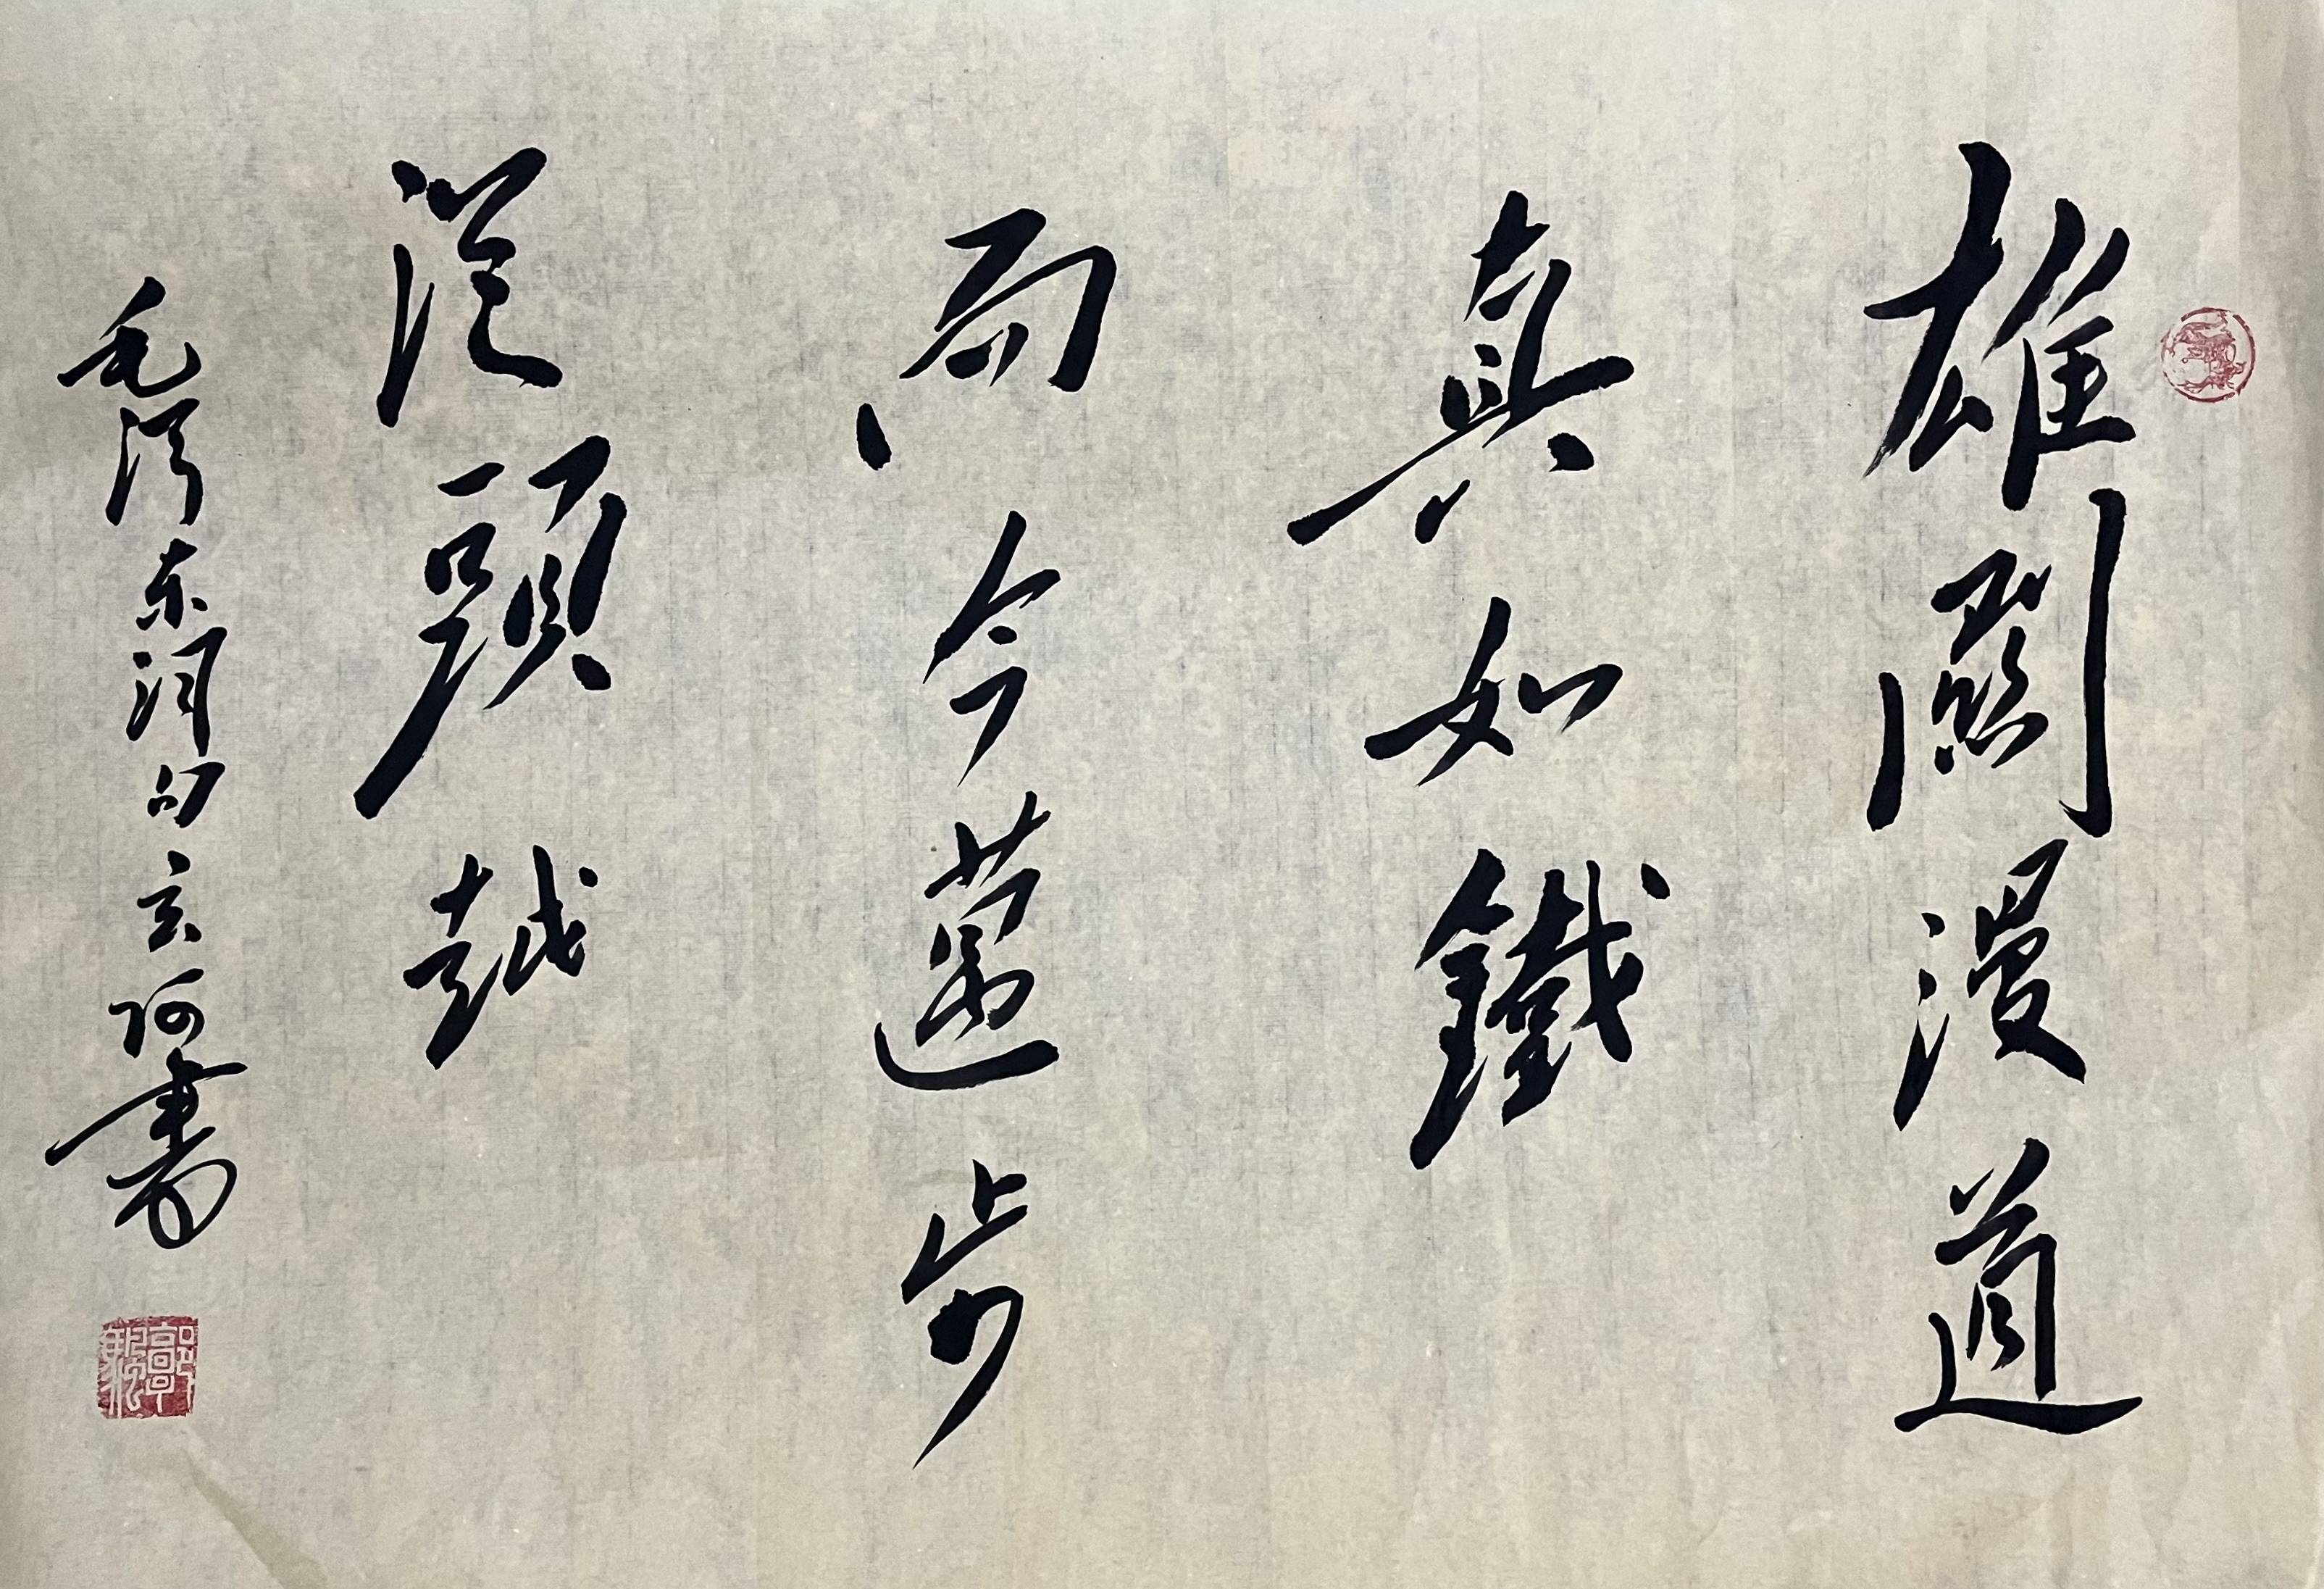 雄關漫道
真如鐵
而今邁步
從頭越
毛澤东詞句玄阿書